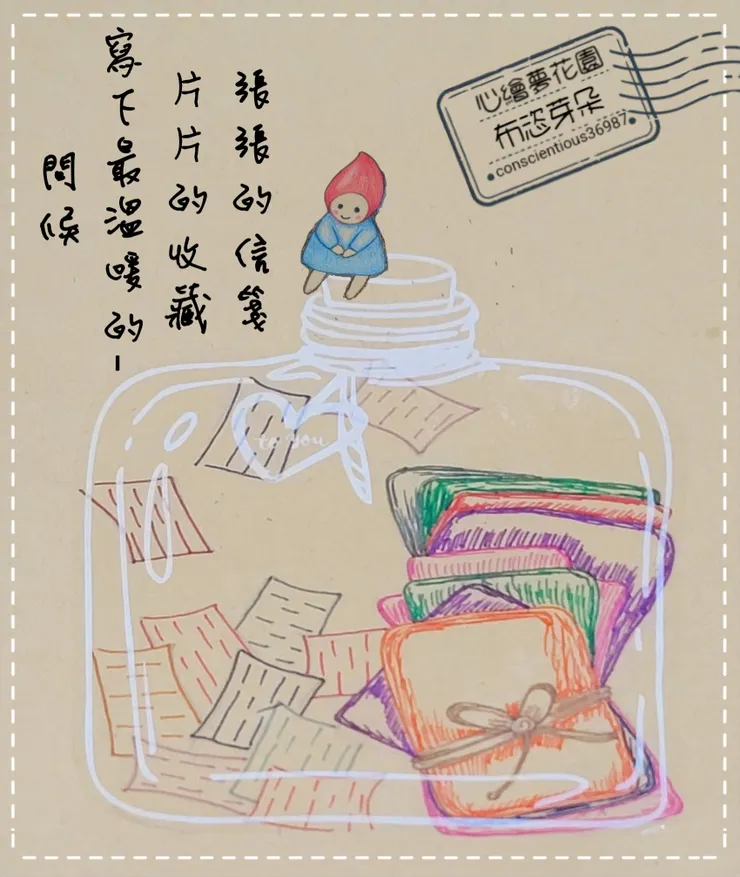 張張的信箋
片片的收藏
寫下最溫暖的-
問候
心繪夢花園
布恣芽朵
conscientious36987
to you